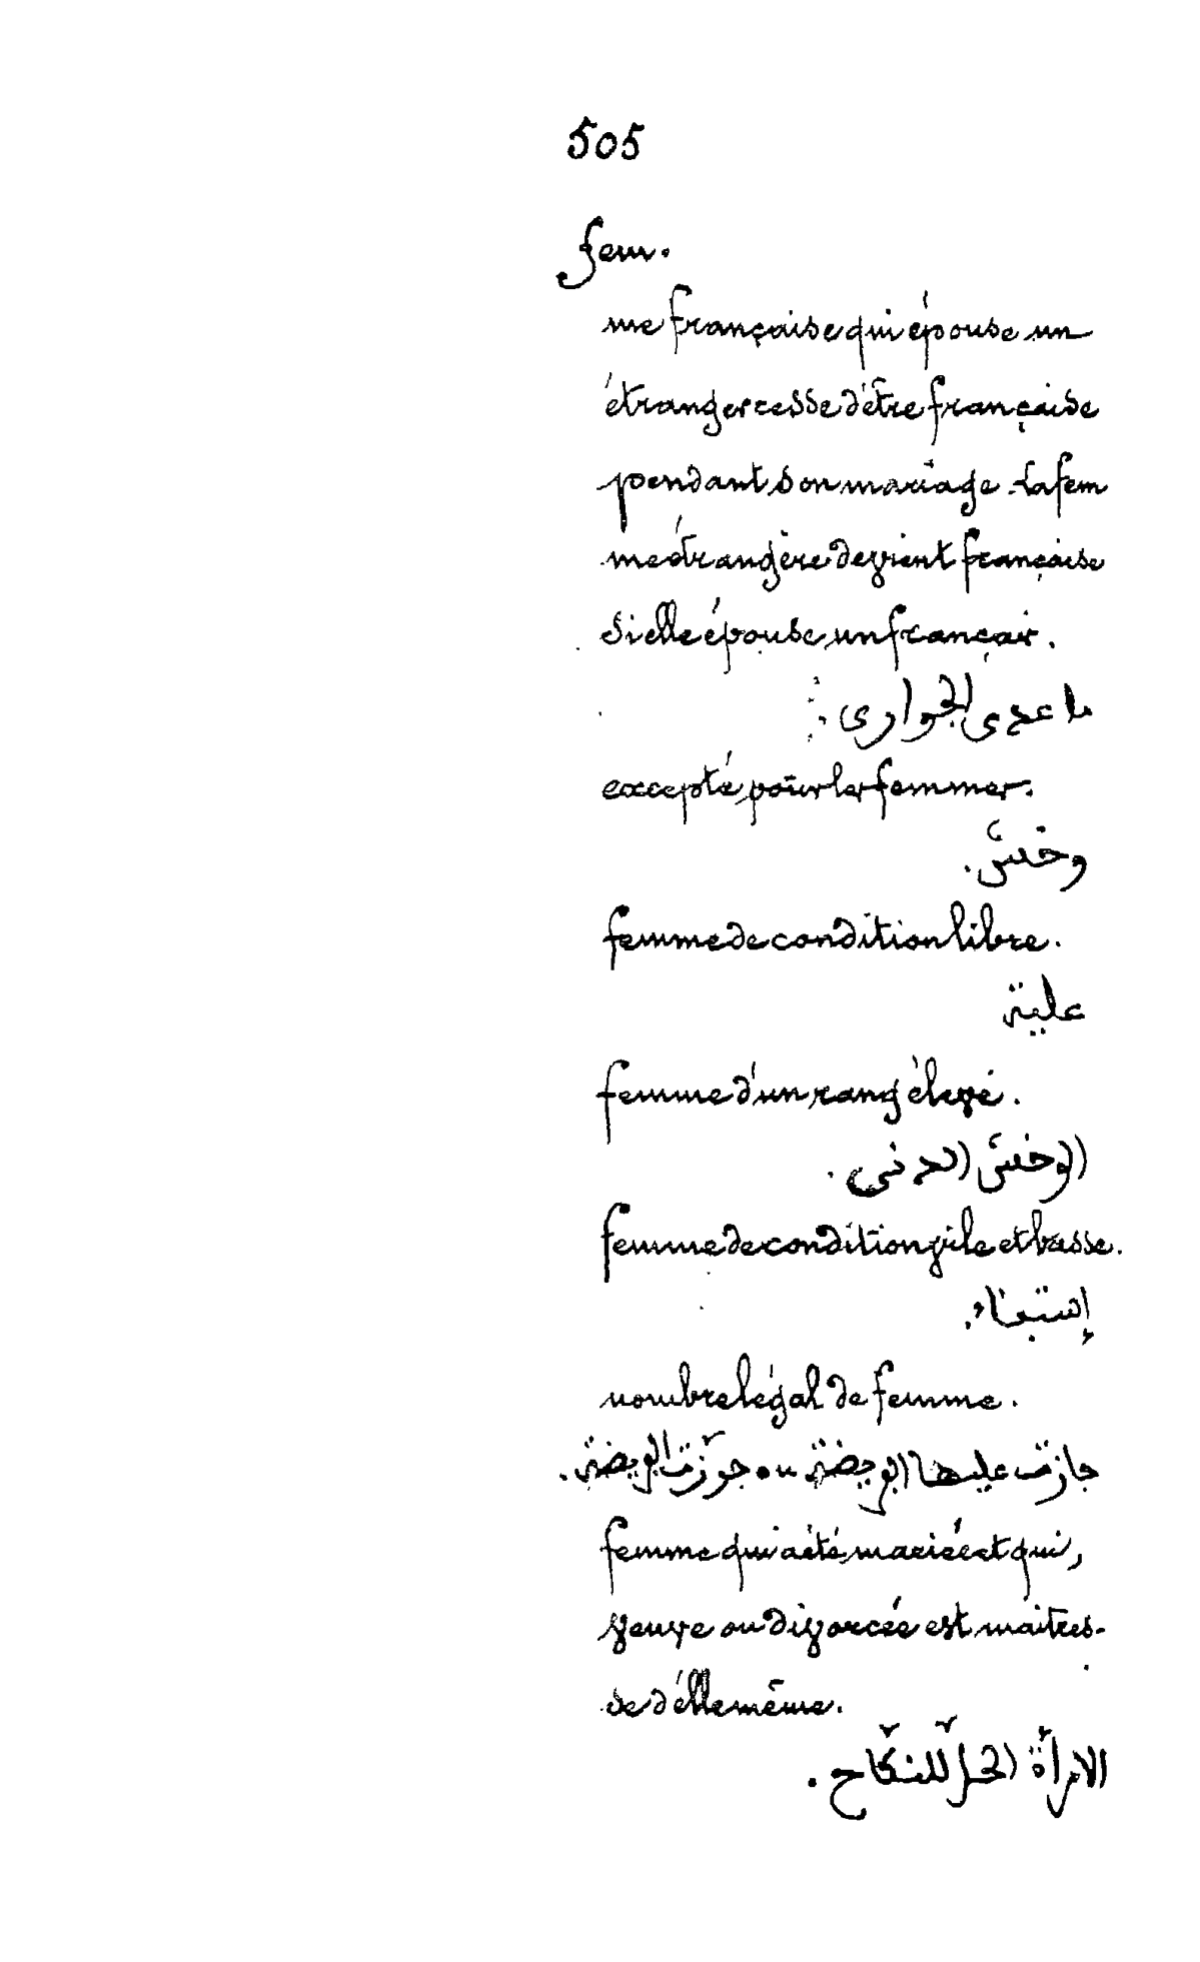 505
fem.
me française qui épouse un
étranger cesse d'être française
pendant son mariage. La fem
me étrangère devient française
si elle épouse un français.
ما عدى الجوارى.
excepté pour les femmes.
وخش.
femme de condition libre.
علية
femme d'un rang élevé.
الوخش الدنى.
femme de condition vile et basse.
nombre légal de femme.
جازت عليها ou جوّزت
femme qui a été mariée et qui,
veuve ou divorcée est maitres-
se d'elle même.
الامرأة الحلّ للنكاح.